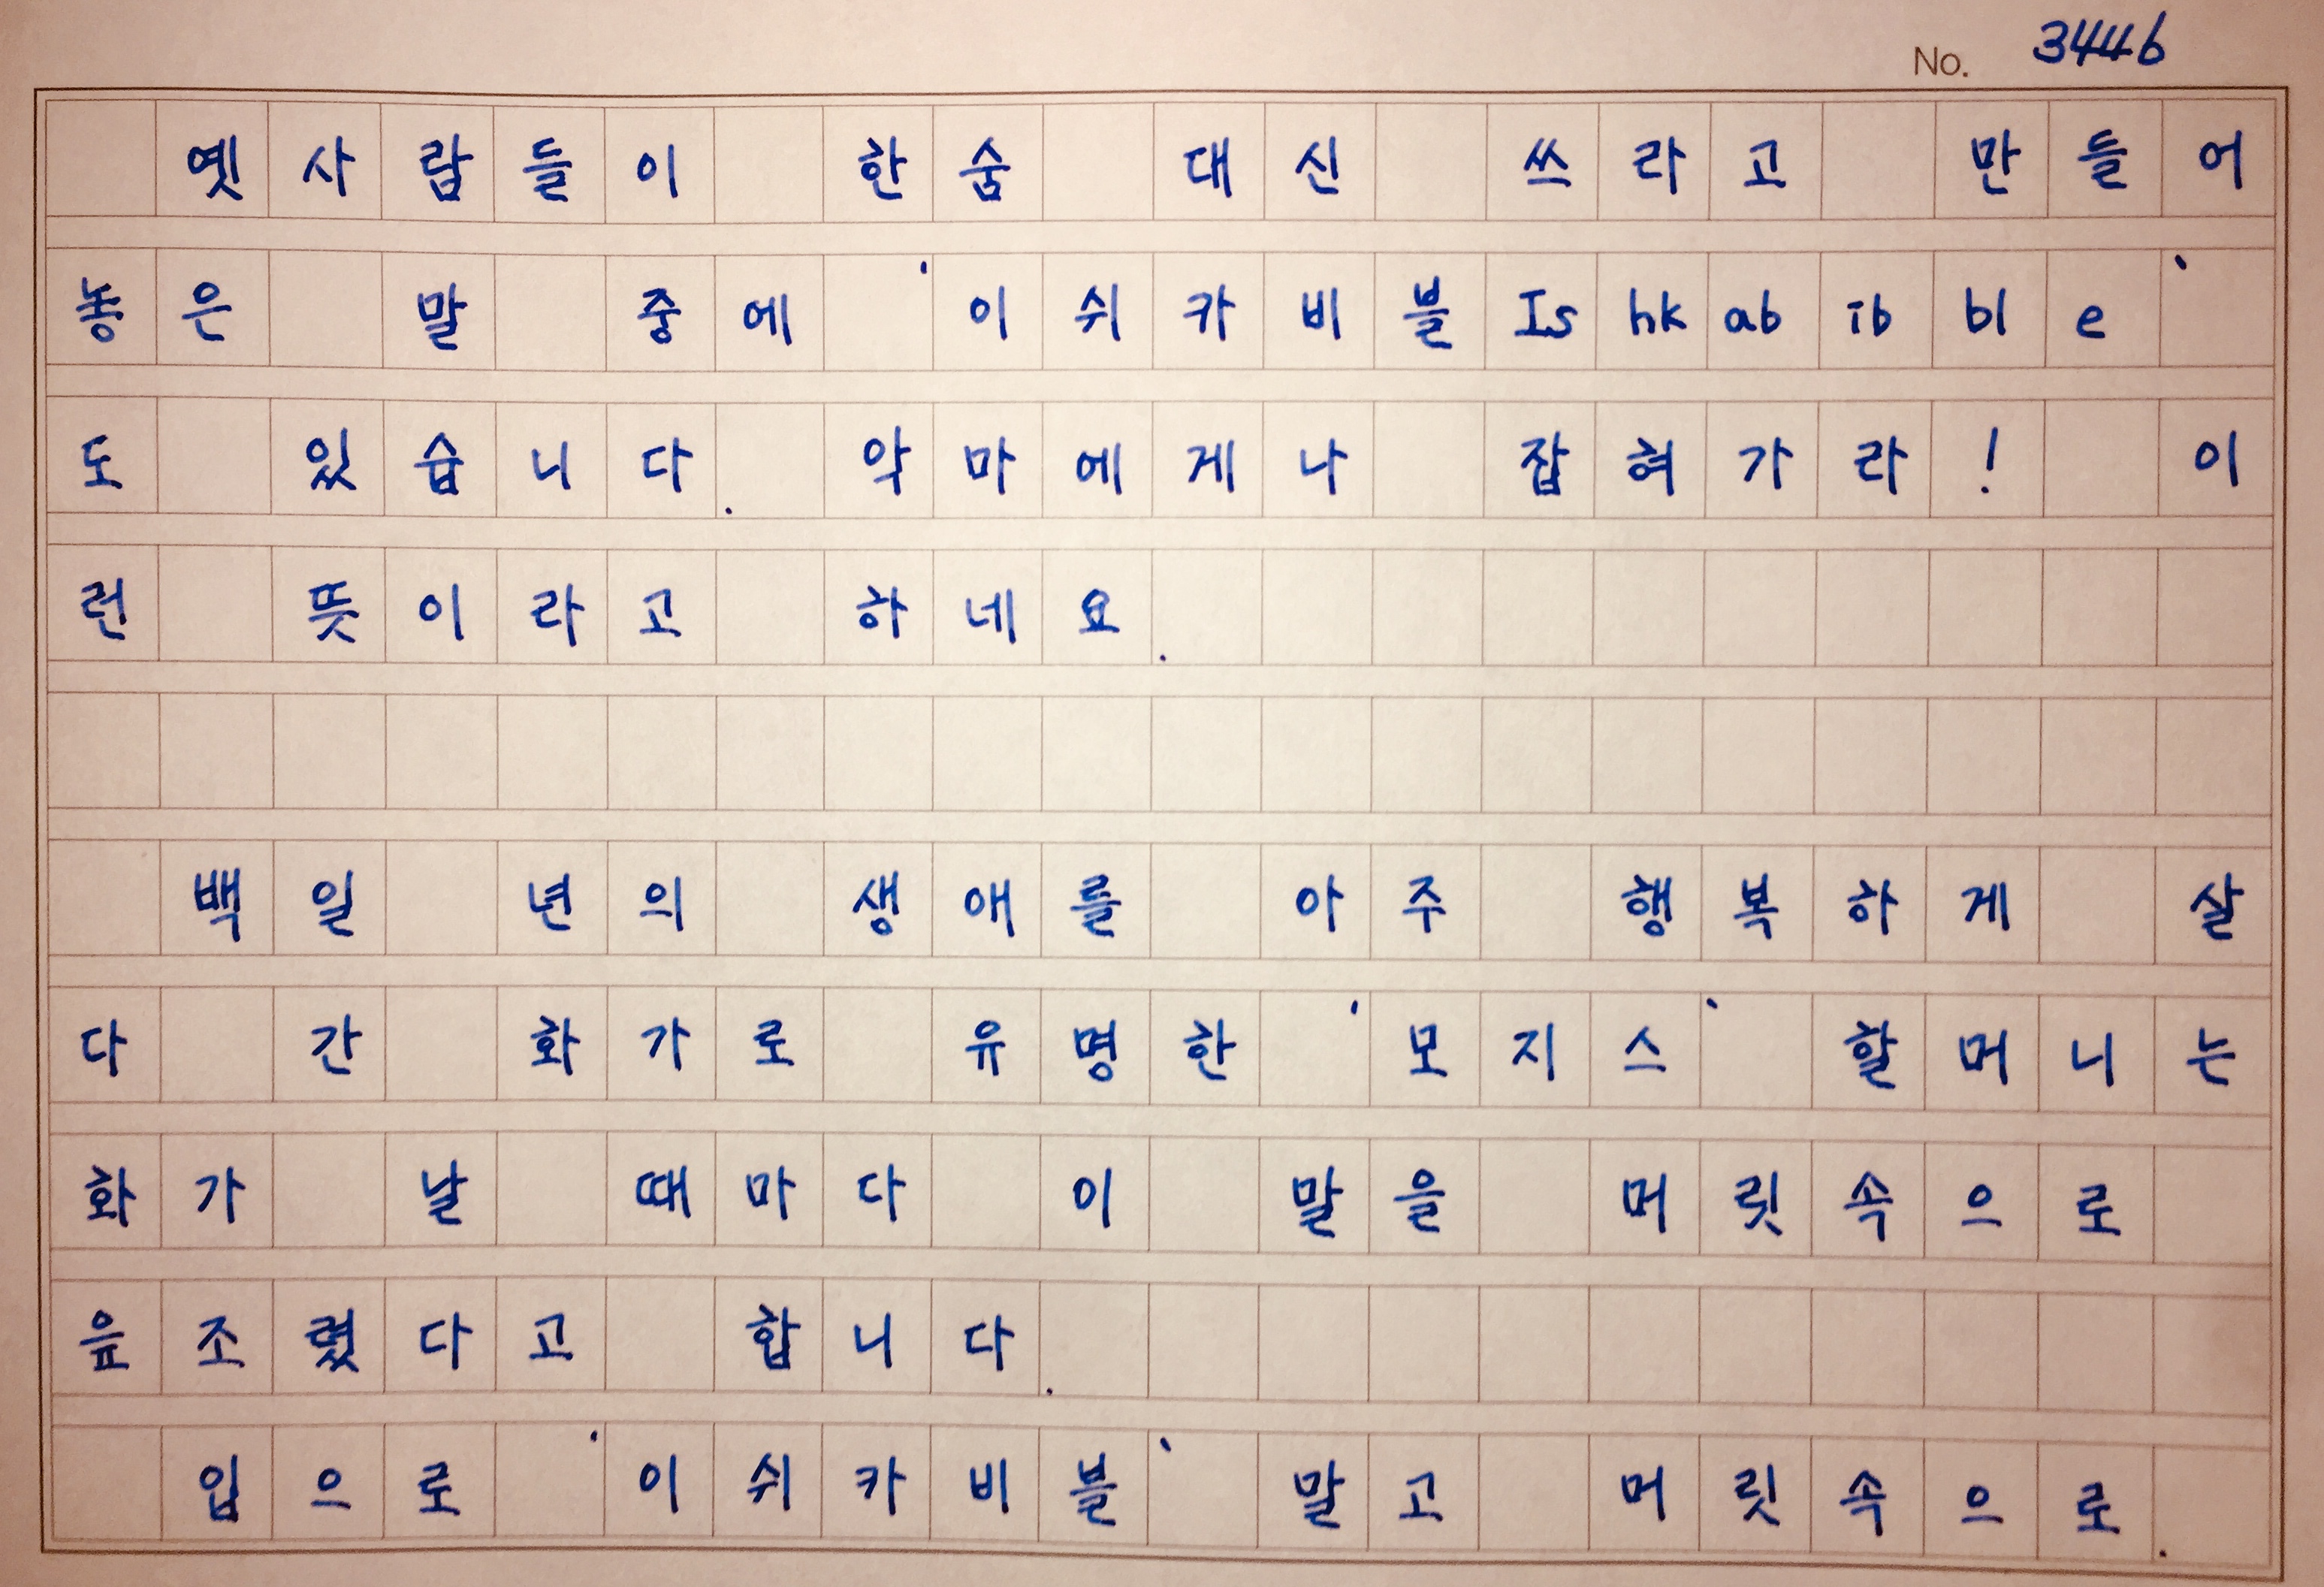 No. 3446
옛사람들이 한숨 대신 쓰라고 만들어
놓은 말 중에 '이쉬카비블Ishkabibble'
도 있습니다. 악마에게나 잡혀가라! 이
런 뜻이라고 하네요.
백일 년의 생애를 아주 행복하게 살
다 간 화가로 유명한 '모지스' 할머니는
화가 날 때마다 이 말을 머릿속으로
읊조렸다고 합니다.
입으로 '이쉬카비블' 말고 머릿속으로.